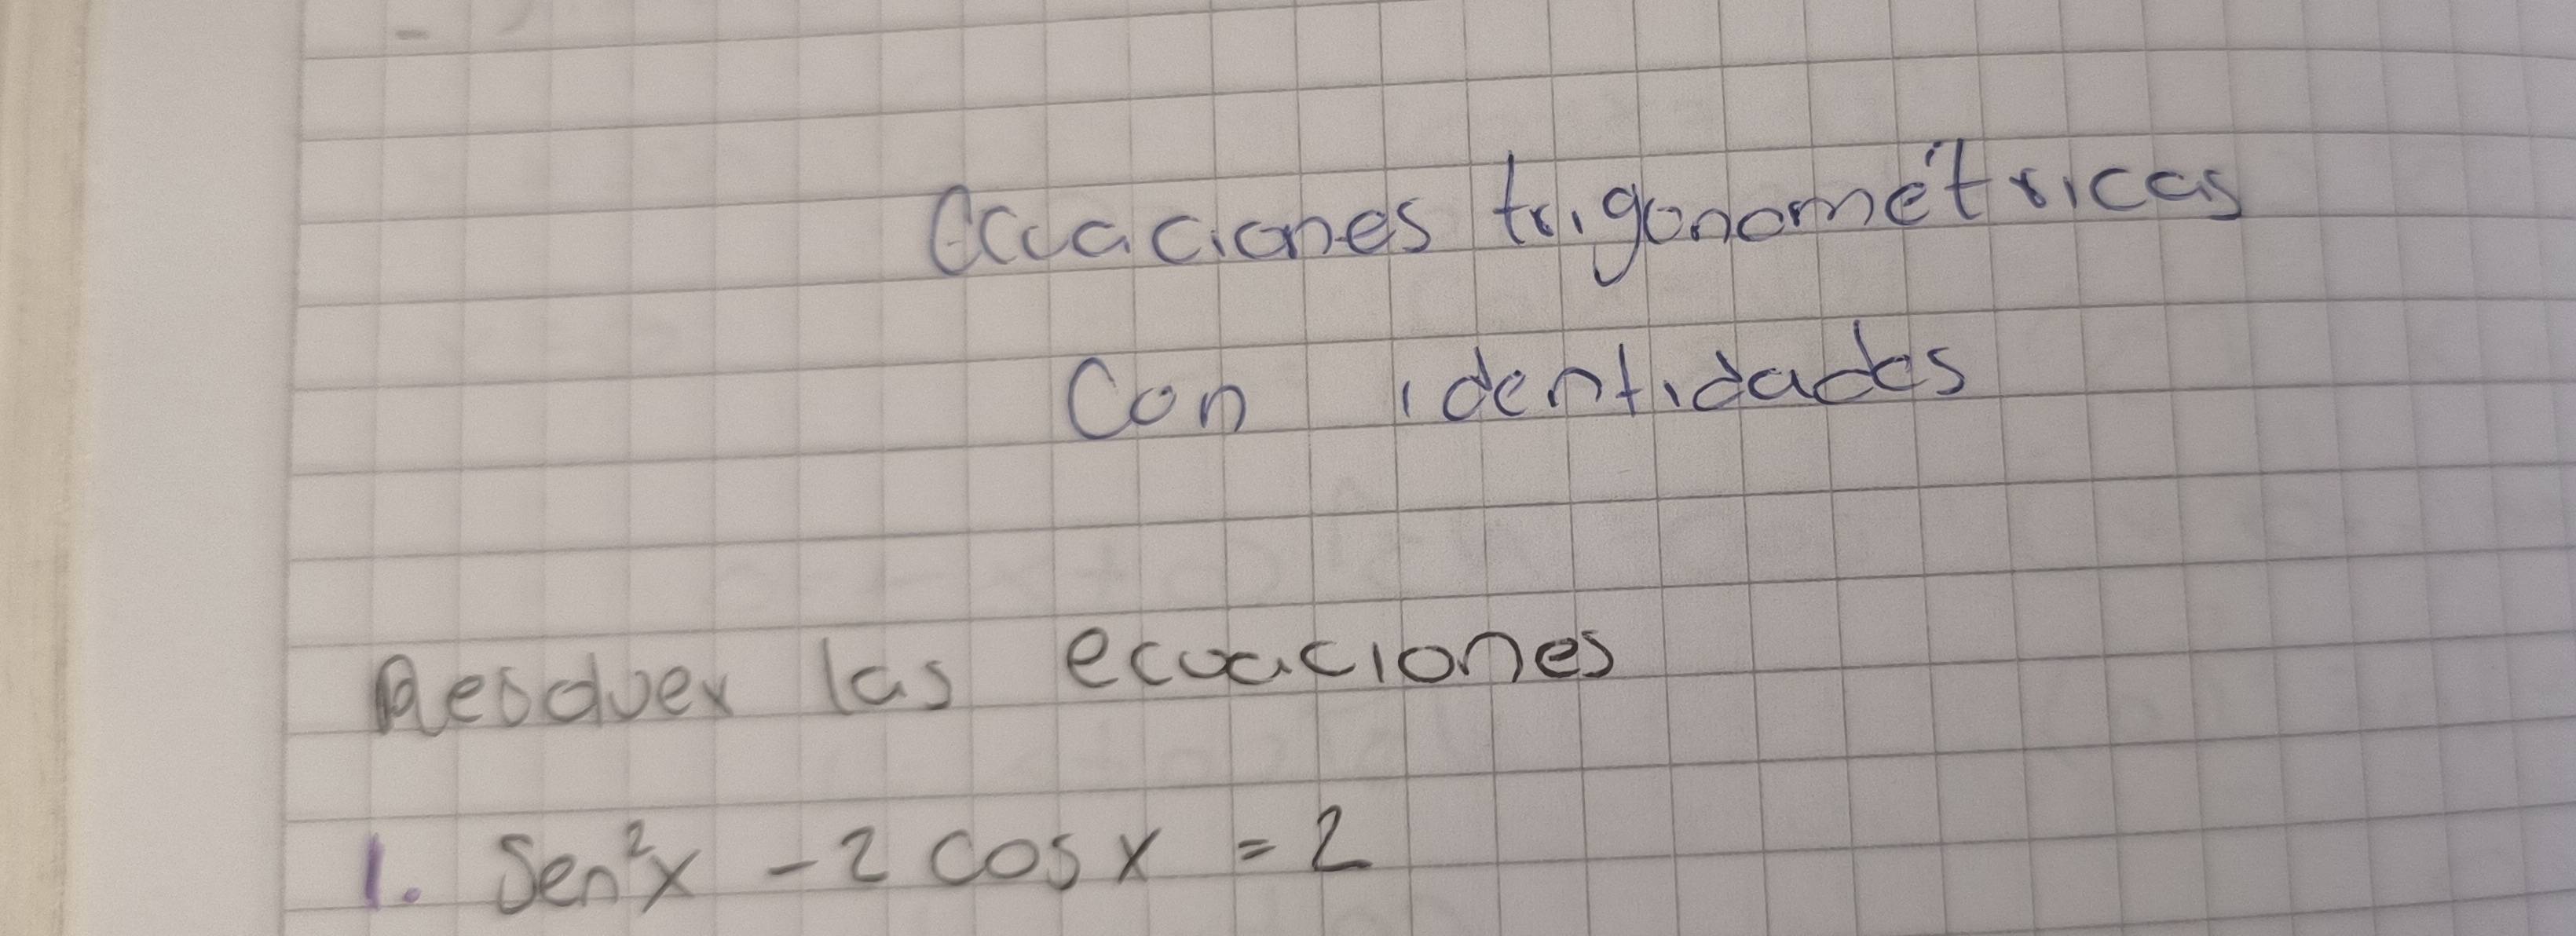 Ecuaciones trigonométricas
Con identidades
Resolver las ecuaciones
1. Sen²x - 2 cos x = 2